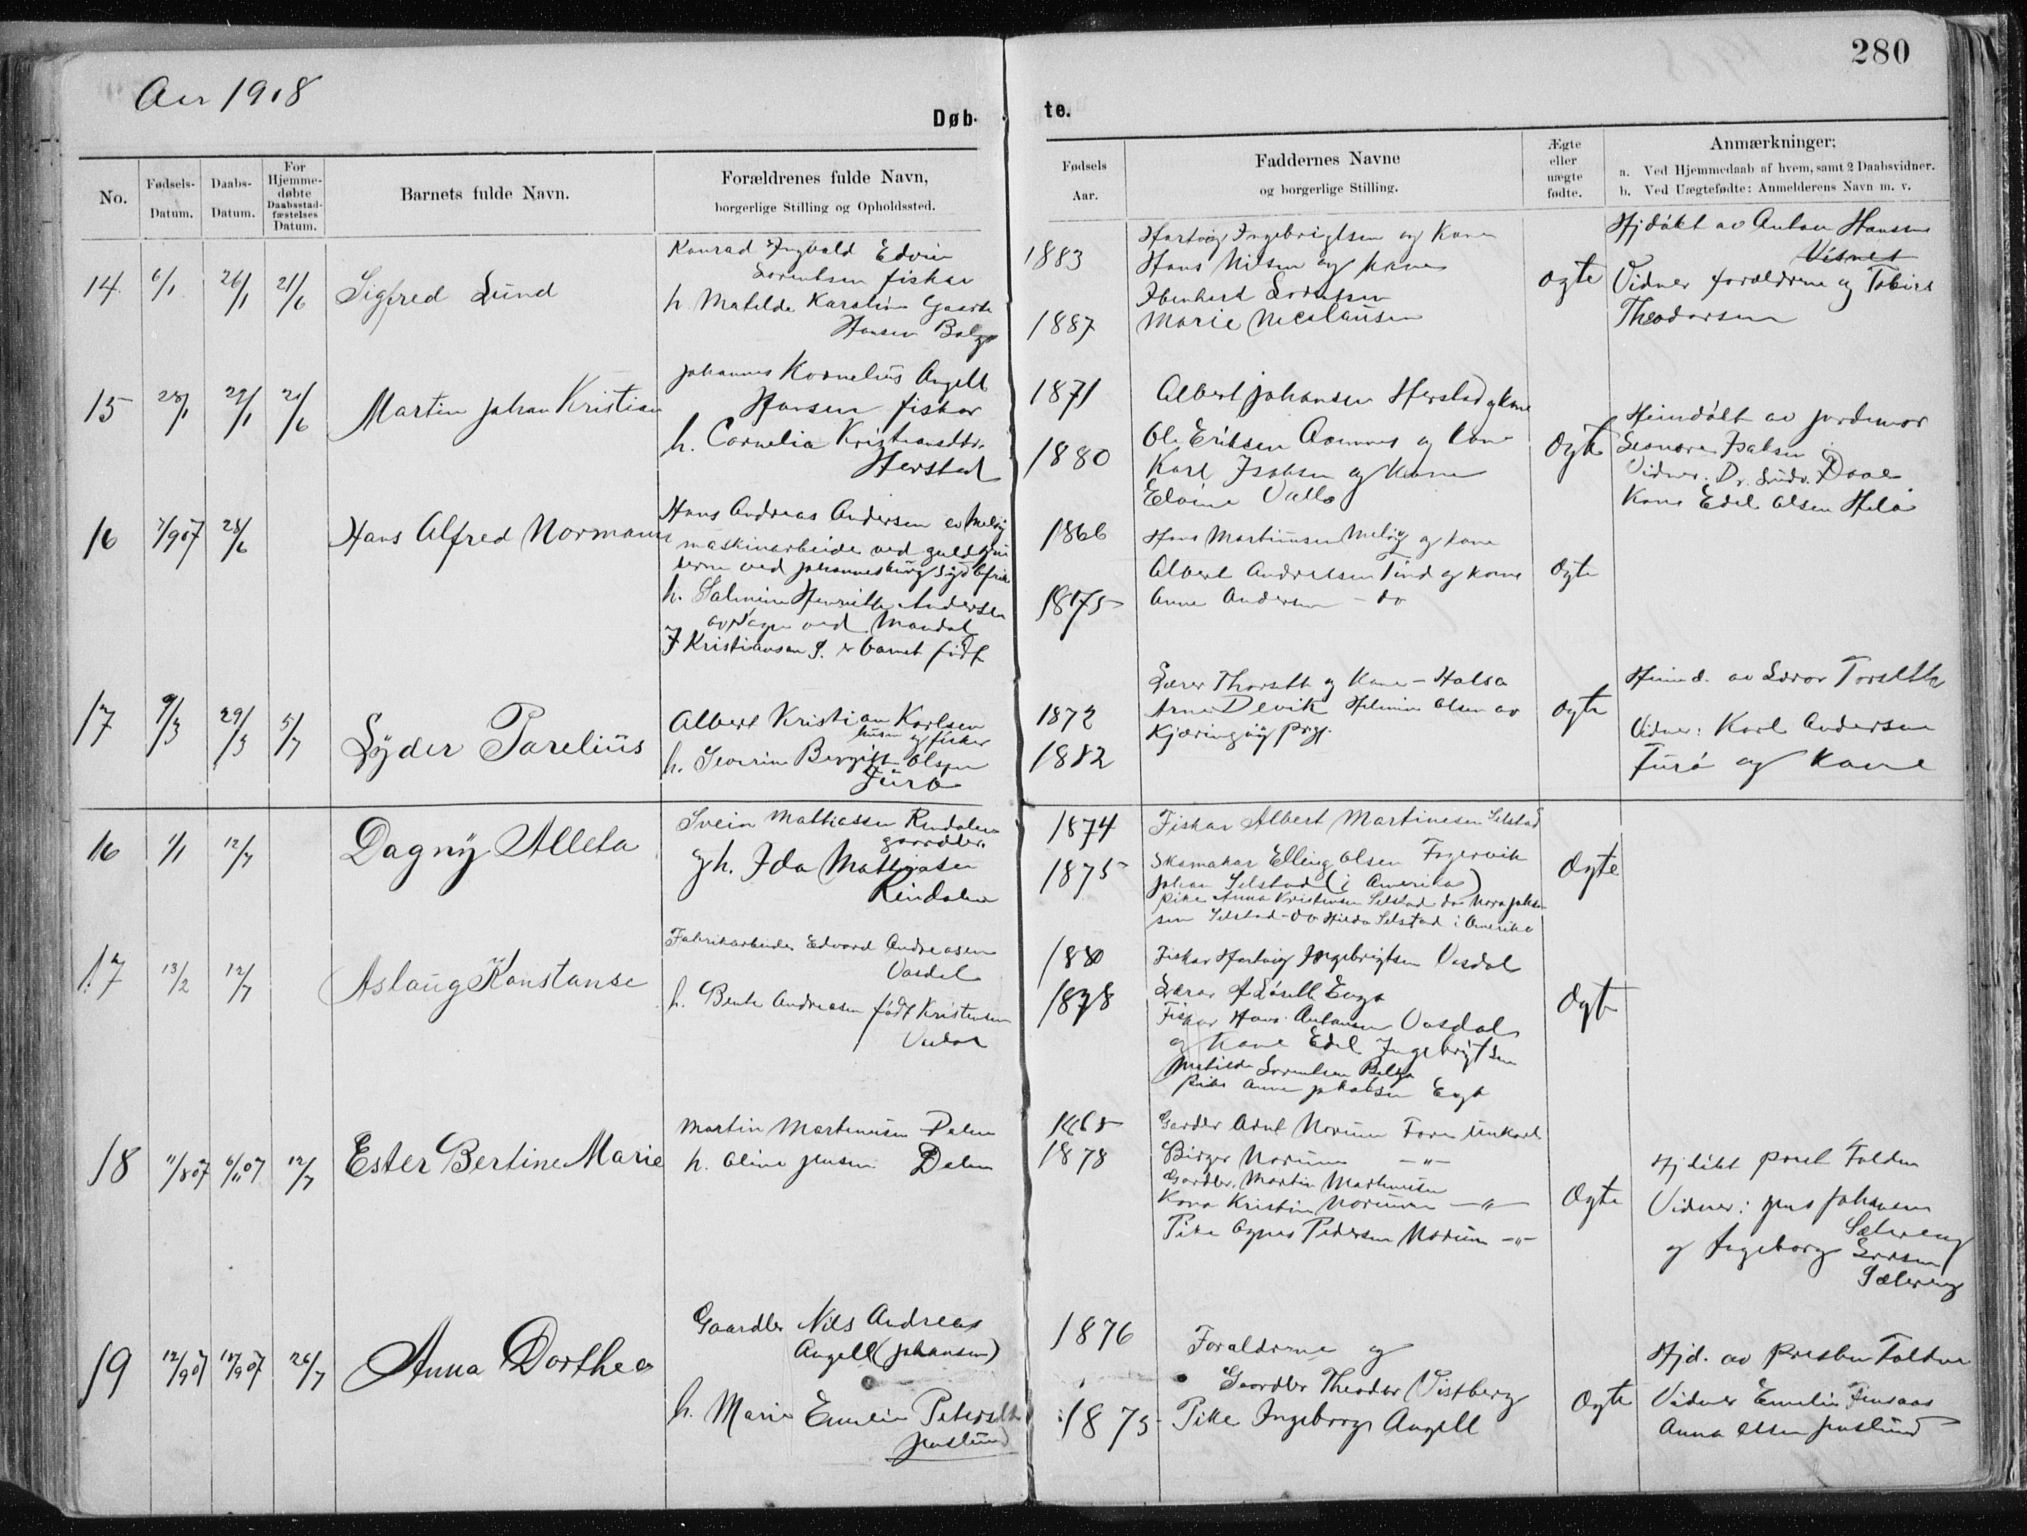 Aar 1908
280
Døb-
te.
No.
Fødsels-
Datum.
Daabs-
Datum.
For
Hjemme-
døbte
Daabsstad-
fæstelses
Datum.
Barnets fulde Navn.
Forældrenes fulde Navn,
borgerlige Stilling og Opholdssted.
Fødsels
Aar.
Faddernes Navne
og borgerlige Stilling.
Ægte
eller
uægte
fødte.
Anmærkninger:
a. Ved Hjemmedaab af hvem, samt 2 Daabsvidner.
b. Ved Uægtefødte: Anmelderens Navn m. v.
14
6/1
26/1
21/6
Sigfred Lund
Konrad Ingvald Edvin
Lorentsen fisker
h. Matilde Karoline
Hansen Bolga
1883
1887
Hartvig Ingebrigtsen og Kone
Hans Nilsen og Kone
Lorentsen
Marie Nicolaisen
ogte
Hjdøbt av Anton Hansen
Visnes
Vidner forældrene og Tobias
Theodorsen
15
21/6
Martin Johan Kristian
Johannes Kornelius Angell
Hansen fisker
h. Cornelia Kristiansdtr.
Herstad
1871
1880
Albert Johansen Herstad og Kone
Ole Eriksen Aamnes og Kone
Karl Isaksen og Kone
Valla
Ogte
Heimdøbt av jordemor
Leonore Isaksen
Vidner: Dr. Ludv. Daae
Kone Edel Olsen
16
7/907
28/6
Hans Alfred Normann
Hans Andreas Andersen av Meløy
maskinarbeide ved guld
ved Johannesburg Syd Afrika
h. Salmine Henrikke Andersen
ved Mandal
I Kristiansan S. er barnet født
1866
1875
Hans Martinusen Meløy og Kone
Albert Andreasen Tind og Kone
Anne Andersen - do
Ogte
17
9/3
29/3
5/7
Lyder Parelius
Albert Kristian Karlsen
husm og fisker
h. Severine Bergitte Olsen
Furø
1872
1882
Lærer Thorseth og Kone - Halsa
Arne Devik Helmine Olsen av
Kjæringøy Prgj.
ogte
Heimd. av Lærer Torseth
Vidner: Karl Andersen
Furø og Kone
16
1/1
12/7
Dagny Alleta
Svein Mathiassen Rendalen
gaardbr.
g h. Ida Mathiasen
Rendalen
1874
1875
Fisker Albert Martinesen Selstad
Skomaker Elling Olsen Fagervik
Johan Selstad (i Amerika)
Pike Anna Kristensen Selstad do Nora Johan-
sen Selstad - do Hilda Selstad i Amerika
Ogte
17
13/2
12/7
Aslaug Konstanse
Fabrikarbeider Edvard Andreasen
Vasdal
h. Bente Andreasen født Kristensen
1880
1878
Fisker Hartvig Ingebrigtsen Vasdal
Lærer Enga
Fisker Hans Antonsen Vasdal
og Kone Edel Ingebrigtsen
Matilde Lorentsen Bolga
Pike Anne Jakobsen Enga
Ogte
18
11/807
6/1107
12/7
Ester Bertine Marie
Martin Martinusen Dalen
h. Oline Jensen Dalen
1865
1878
Gardbr Arnt Norum Fore unkarl
Birger Norum - " -
Gardbr. Martin Martinusen
Kona Kristine Norum - " -
Pike Agnes Pedersen Norum - " -
Ogte
Hjdøbt prest Falden
Vidner: Jens Johansen
Sætereng
og Ingeborg Larsen
Sætereng
19
12/907
26/7
Anna Dorthea
Gaardbr Nils Andreas
Angell (Johansen)
h. Marie Emelie Petersdtr
Jenslund
1876
1875
Forældrene og
Gaardbr Theodor Vistberg
Pike Ingeborg Angell
Ogte
Hjd. av Presten Falden
Vidner Emelie Jensaas
Anna Olsen Jenslund